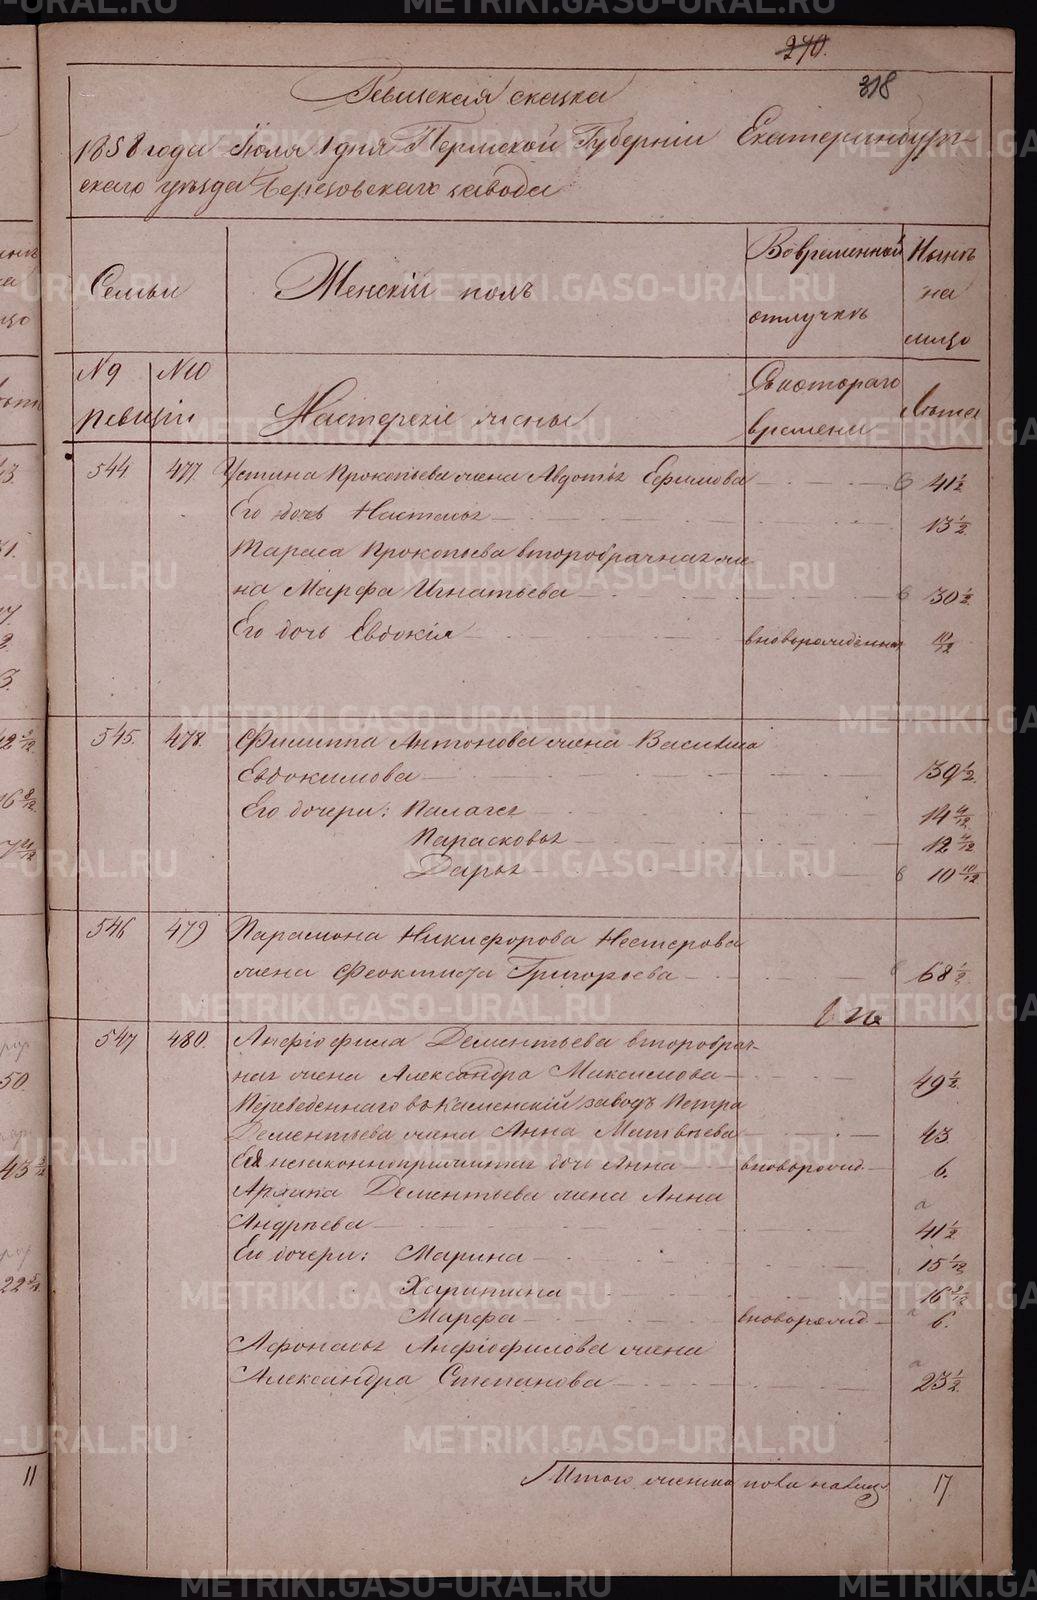 270.
318
Ревизская сказка
1858 года Июля 1 дня Пермской Губерніи Екатеринбург-
скаго уѣзда Березовскаго завода
Семьи
Женскій полъ
Во временной отлучкѣ
Нынѣ на лицо
№ 9 № 10
ревизіи
Мастерскіе жены
Съ котораго времени
Лѣта
544. 477. Устина Прокопьева жена Авдотья Ефимова 41 1/2
Его дочь Настасья 13 1/2
Тараса Прокопьева второбрачная же-
на Марфа Игнатьева 30 1/2
Его дочь Евдокія вноворожденная 10/12
545. 478. Филиппа Антонова жена Василиса
Евдокимова 39 1/2
Его дочери: Палагея 14 4/12
Парасковья 12 4/12
Дарья 10 10/12
546 479 Парамона Никифорова Нестерова
жена Феоктиста Григорьева 68 1/2
547 480. Анфіофила Дементьева второбрач-
ная жена Александра Максимова 49 1/2
Переведеннаго въ Каменскій заводъ Петра
Дементьева жена Анна Матвѣева 43.
Ея незаконноприжитая дочь Анна вноворожд. 6.
Дементьева жена Анна
Андреева 41 1/2
Его дочери: Марина 15 1/12
Харитина 16
Марфа вноворожд 6.
Афонасья Анфіофилова жена
Александра Степанова 23 1/2
Итого женска пола на лицо 17
METRIKI.GASO-URAL.RU